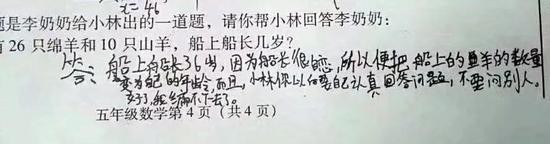 x=46
题是李奶奶给小林出的一道题，请你帮小林回答李奶奶：
有 26 只绵羊和 10 只山羊，船上船长几岁？
答：船上船长36岁，因为船长很 ，所以便把船上的 羊的数量
变为自己的年龄，而且，小林你以后要自己认真回答问题，不要问别人。
 了，我 编不下去了。
五年级数学第 4 页（共 4 页）